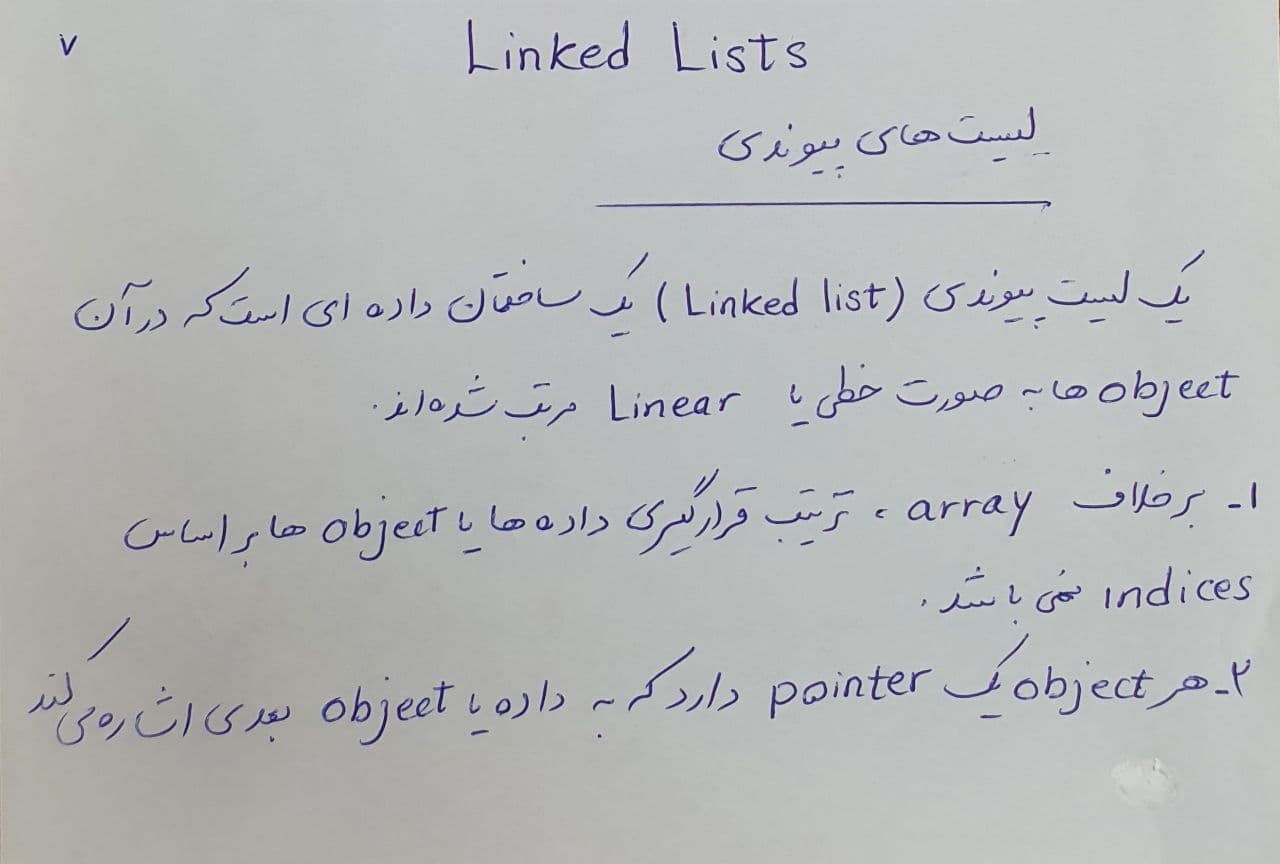 ۷
Linked Lists
لیست های پیوندی
یک لیست پیوندی (Linked list) یک ساختمان داده ای است که در آن
object ها به صورت خطی یا Linear مرتب شده‌اند.
۱- برخلاف array، ترتیب قرارگیری داده ها یا object ها بر اساس
indices نمی باشد.
۲- هر object یک pointer دارد که به داده یا object بعدی اشاره می کند